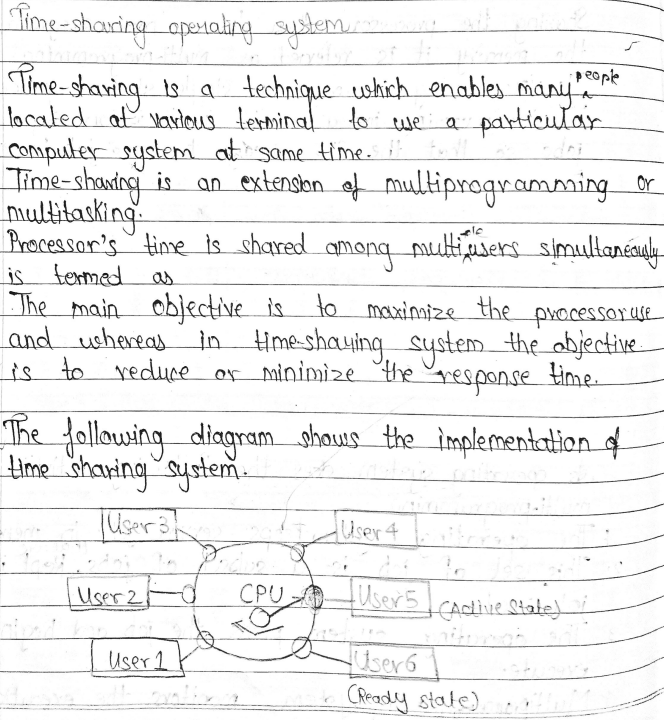 Time-sharing operating system
Time-sharing is a technique which enables many people
located at various terminal to use a particular
computer system at same time.
Time-sharing is an extension of multiprogramming or
multitasking.
Processor's time is shared among multiple users simultaneously
is termed as
The main objective is to maximize the processor use
and whereas in time-sharing system the objective
is to reduce or minimize the response time.
The following diagram shows the implementation of
time sharing system.
User 3
User 4
User 2
CPU
User 5 (Active State)
User 1
User 6
(Ready state)